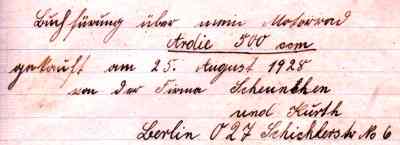 Buchfürung über mein Motorrad
Ardie 500 ccm
gekauft am 25. August 1928
von der Firma Scheunchen
und Kurth
Berlin O 27 Schicklerstr No 6